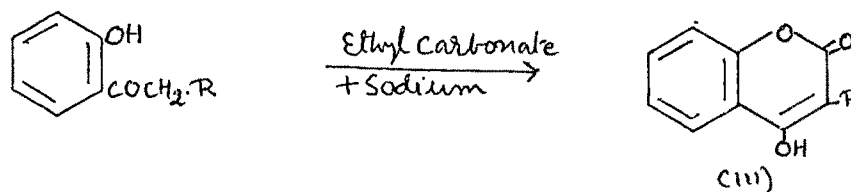 OH
COCH₂·R
Ethyl Carbonate
+ Sodium
O
O
R
OH
(III)